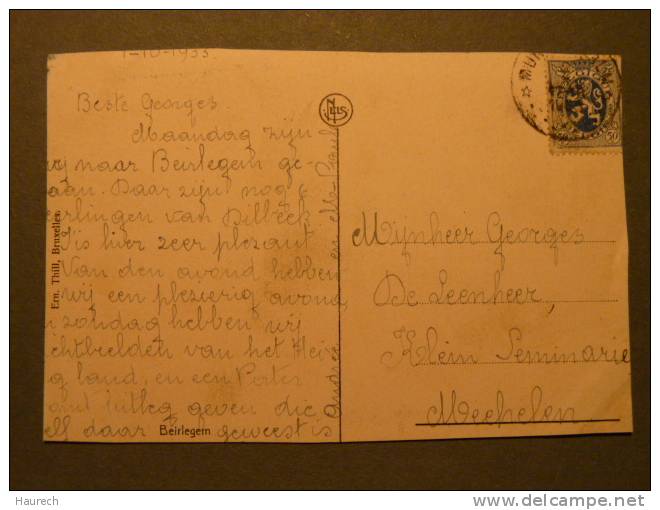 1-10-1933
Beste Georges
Maandag zijn
wij naar Beirlegem ge-
aan. Daar zijn nog 6
erlingen van Dilbeek
'Tis hier zeer plezant
Van den avond hebben
wij een plezierig avond,
n zondag hebben wij
ichtbeelden van het Heili
g land, en een Pater
uitleg geven die
elf daar geweest is
Andrea en Ma
NELS
Ern. Thill, Bruxelles.
Beirlegem
Mijnheer Georges
De Leenheer,
Klein Seminarie
Mechelen
50
Haurech
delcampe.net